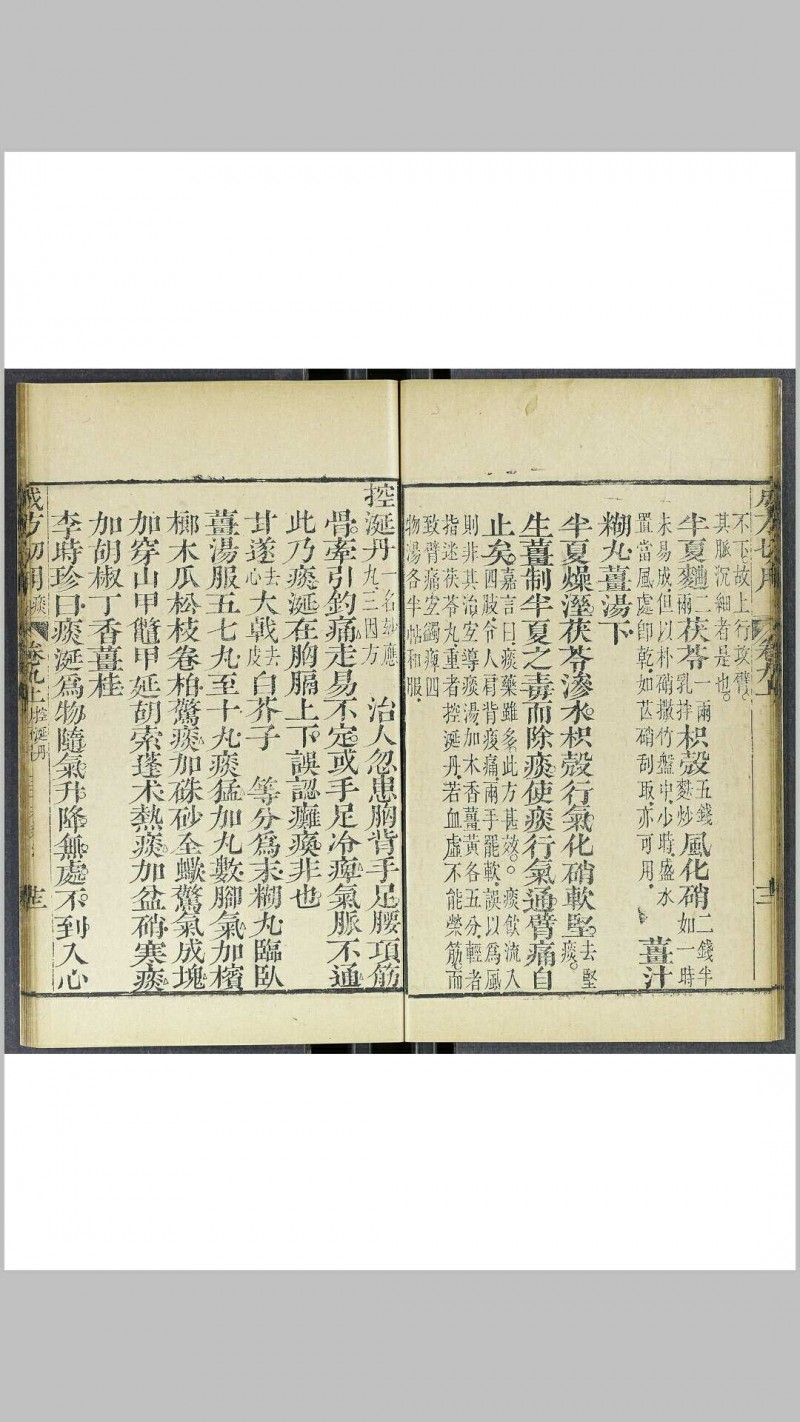 不下故上行攻臂
其脈沉細者是也
半夏麴二兩茯苓一兩乳拌枳殼五錢麩炒風化硝二錢半如一時
未易成但以朴硝撒竹盤中少時盛水
置當風處即乾如芒硝刮取亦可用 薑汁
糊丸薑湯下
半夏燥溼茯苓滲水枳殼行氣化硝軟堅去堅痰
生薑制半夏之毒而除痰使痰行氣通臂痛自
止矣嘉言曰痰藥雖多此方甚效 痰飲流入四肢令人肩背痠痛兩手罷軟誤以爲風
則非其治宜導痰湯加木香薑黃各五分輕者
指迷茯苓丸重者控涎丹若血虛不能榮筋而
致臂痛宜蠲痺四
物湯各半帖和服
卷九上
控涎丹一名妙應丸三因方 治人忽患胸背手足腰項筋
骨牽引釣痛走易不定或手足冷痺氣脈不通
此乃痰涎在胸膈上下誤認癱瘓非也
甘遂去心大戟去皮白芥子 等分爲末糊丸臨臥
薑湯服五七丸至十丸痰猛加丸數腳氣加檳
榔木瓜松枝卷柏驚痰加硃砂全蠍驚氣成塊
加穿山甲鼈甲延胡索蓬朮熱痰加盆硝寒痰
加胡椒丁香薑桂
李時珍曰痰涎爲物隨氣升降無處不到入心
成方切用 痰 卷九上 控涎丹